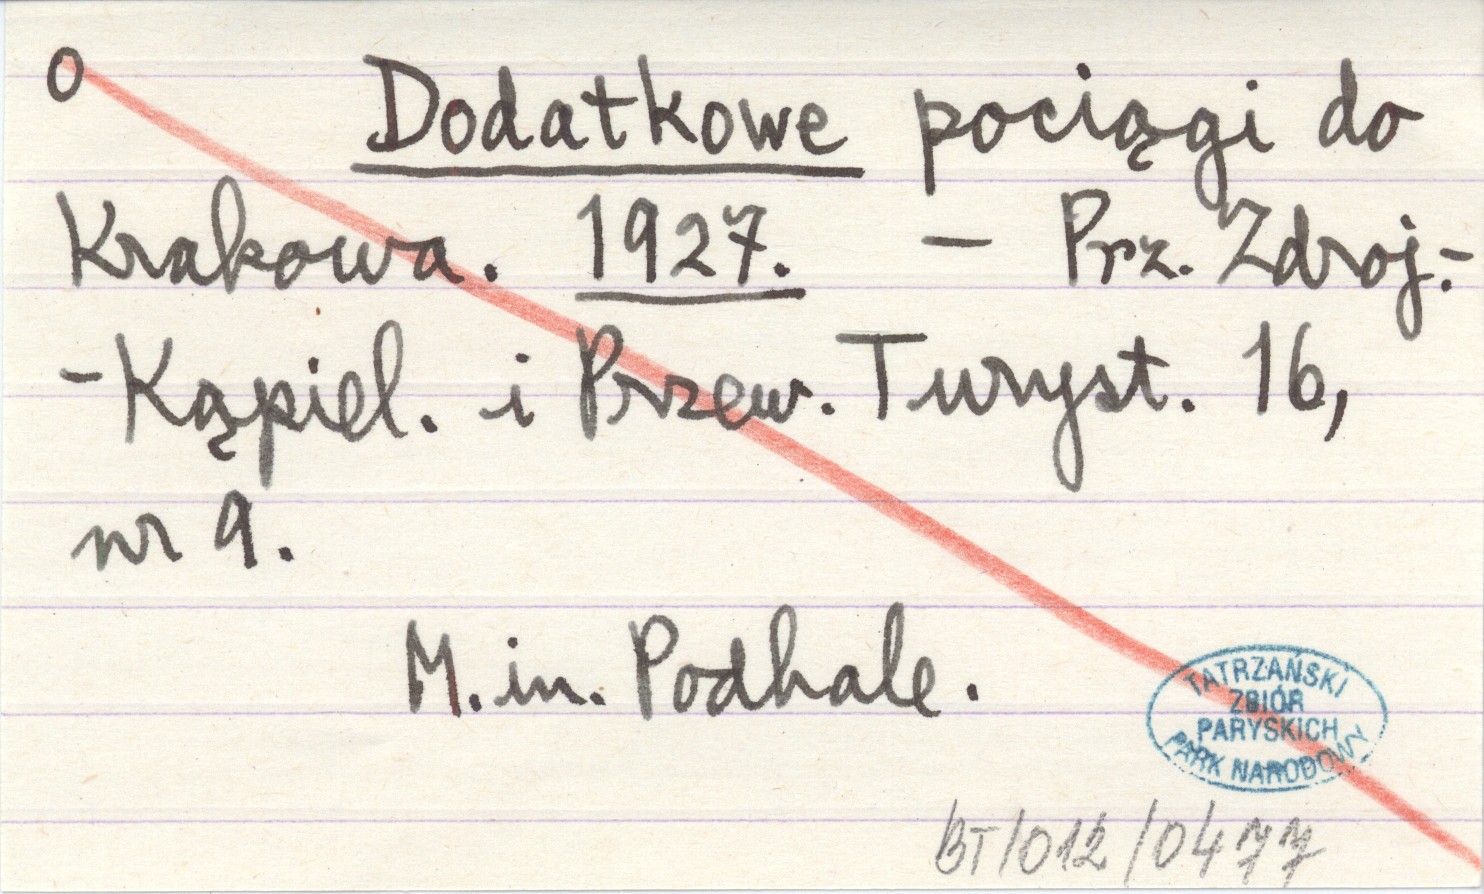 O Dodatkowe pociągi do
Krakowa. 1927. – Prz. Zdroj.-
-Kąpiel. i Przew. Turyst. 16,
nr 9.
M. in. Podhale.
TATRZAŃSKI
ZBIÓR
PARYSKICH
PARK NARODOWY
BT/012/0477